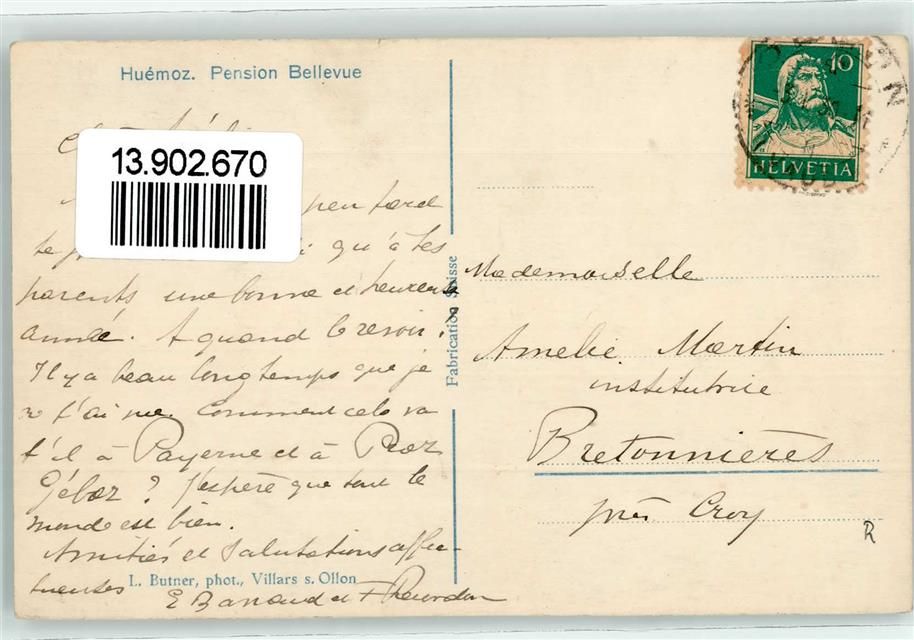 Huémoz. Pension Bellevue
13.902.670
peu tard
qu'à tes
parents une bonne et heureuse
année. A quand le revoir.
Il y a beau longtemps que je
n t'ai vue. Comment cela va
t'il à Payerne et à
? J'espère que tout le
monde est bien.
Amitiés et Salutations affec-
tueuses
L. Butner, phot., Villars s. Ollon
Fabrication Suisse
10
HELVETIA
Mademoiselle
Amélie Martin
institutrice
Bretonnières
près Croy
R